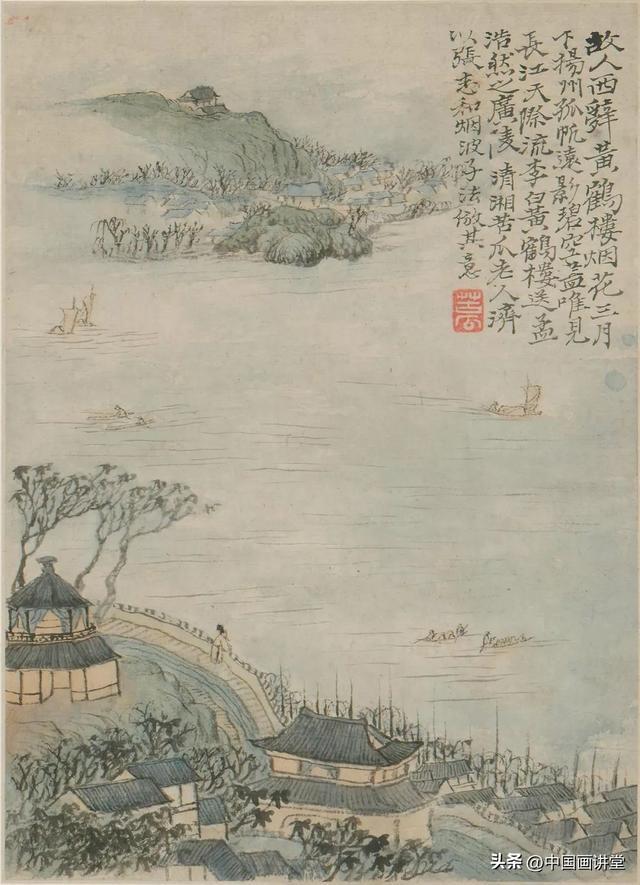 故人西辭黃鶴樓烟花三月
下揚州孤帆遠影碧空盡唯見
長江天際流李白黃鶴樓送孟
浩然之廣陵 清湘苦瓜老人濟
以張志和烟波子法倣其意
头条 @中国画讲堂